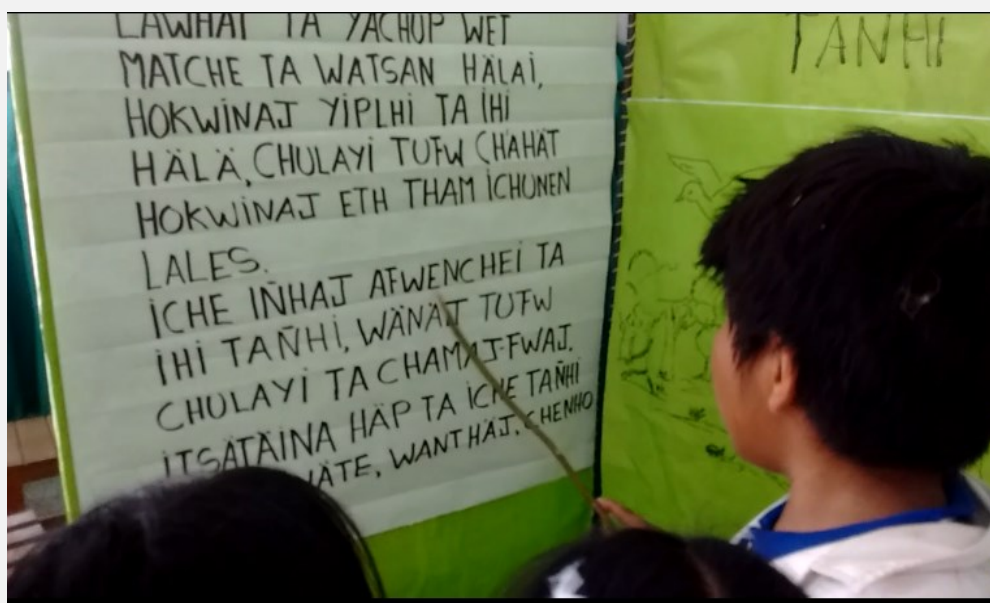 LAWHAI TA YACHUP WET
MATCHE TA WATSAN HÄLAI,
HOKWINAJ YIPLHI TA IHI
HÄLÄ, CHULAYI TUFW CHAHÄT
HOKWINAJ ETH THAM ICHUNEN
LALES.
ICHE IÑHAJ AFWENCHEI TA
IHI TAÑHI, WÄNÄT TUFW
CHULAYI TA CHAMAJ-FWAJ.
ITSÄTÄINA HÄP TA ICHE TAÑHI
WANTHÄJ. CHENHO
TAÑHI